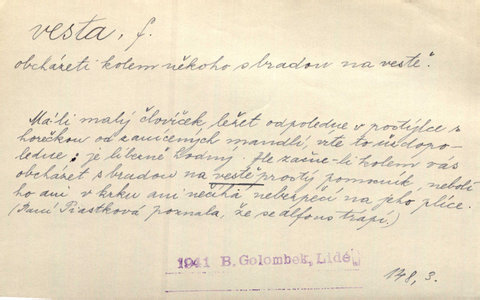 vesta, f.
obcházeti kolem někoho s bradou na vestě.
Má-li malý človíček ležet odpoledne v postýlce s
horečkou od zanícených mandlí, vře to odpo-
ledne je líbezné hodiny. Ale začne-li kolem vás
obcházet s bradou na vestě prostý pomocník, nebolí
ho ani v krku ani nečíhá nebezpečí na jeho plíce.
(Paní Piastková poznala, že se alfons trápí.)
1941 B. Golombek, Lidé,
148, 3.